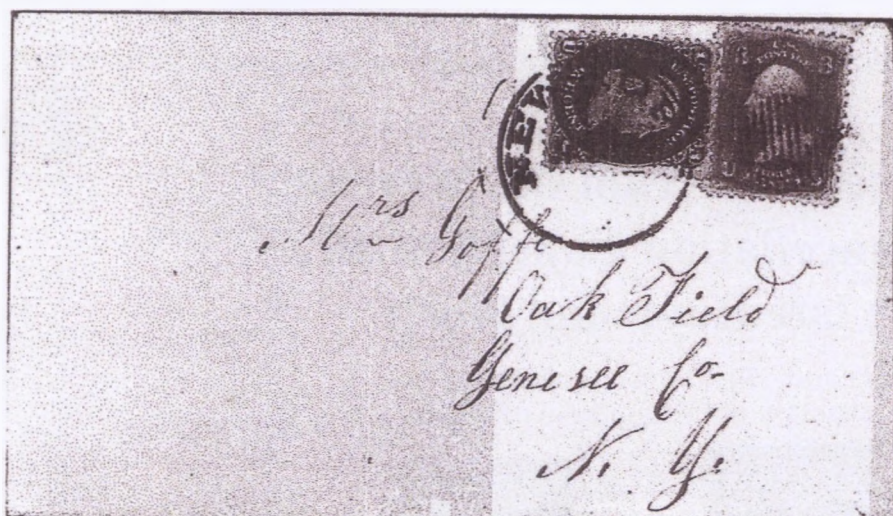 NEW
3 3
Mrs Goffe
Oak Field
Genesee Co.
N. Y.